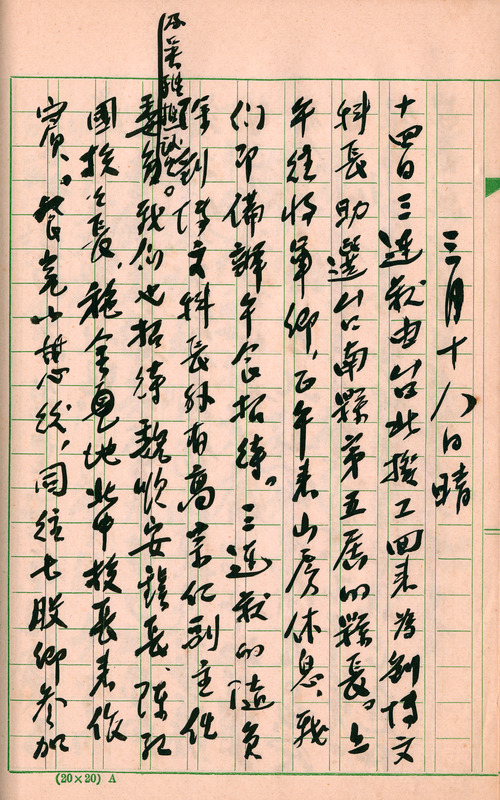 三月十八日晴
十四日三連叔由台北撥工回來為劉博文
科長助選台南縣第五屆的縣長。上
午往將軍鄉,正午來山房休息,我
們即備辦午食招待。三連叔的隨員
除劉博文科長外有高 仁副主任
委員及吳 。我们也招待魏順安鎮長、陳
國挨公長,施金 地北中校長來作
賓。餐完小憩後,同往七股鄉參加
(20×20) A